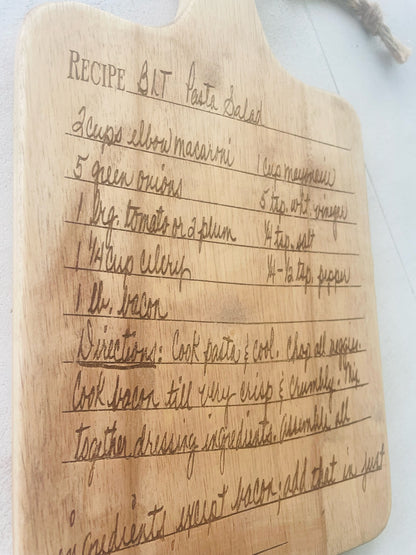 RECIPE BLT Pasta Salad
2 cups elbow macaroni 1 cup mayonnaise
5 green onions 5 tsp. wht. vinegar
1 lrg. tomato or 2 plum ¼ tsp. salt
1 ¼ cup celery ¼-½ tsp. pepper
1 lb. bacon
Directions: Cook pasta & cool. Chop all veggies.
Cook bacon till very crisp & crumbly. Mix
together dressing ingredients. Assemble all
ingredients, except bacon, add that in just